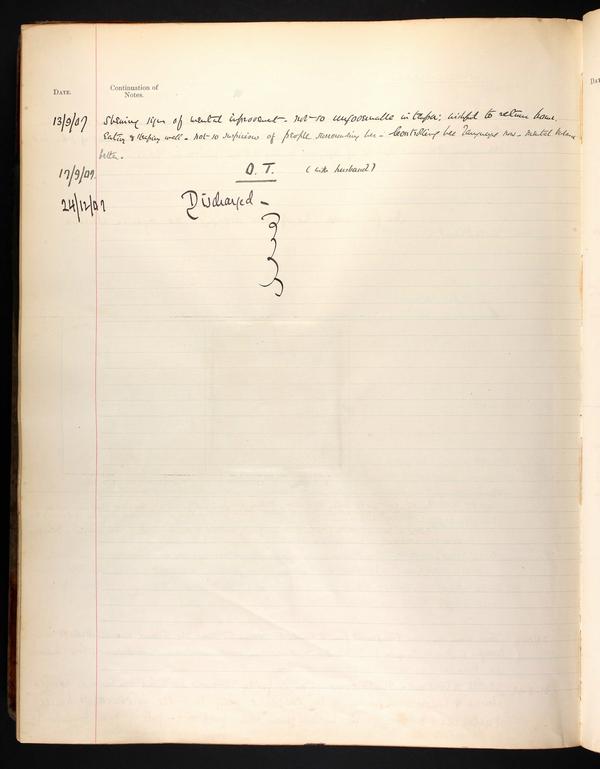 DATE.
Continuation of
Notes.
13/9/07 Shewing signs of mental improvement - not so unreasonable in temper; wishful to return home.
Eating & sleeping well - not so suspicious of people surrounding her - Controlling her language now - mental balance
better.
17/9/07 O. T. (with husband)
24/12/07 Discharged -